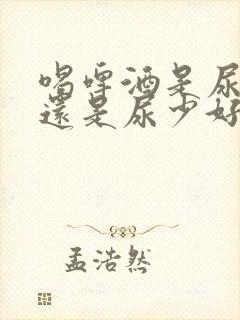 喝啤酒是尿
還是尿少好
孟浩然